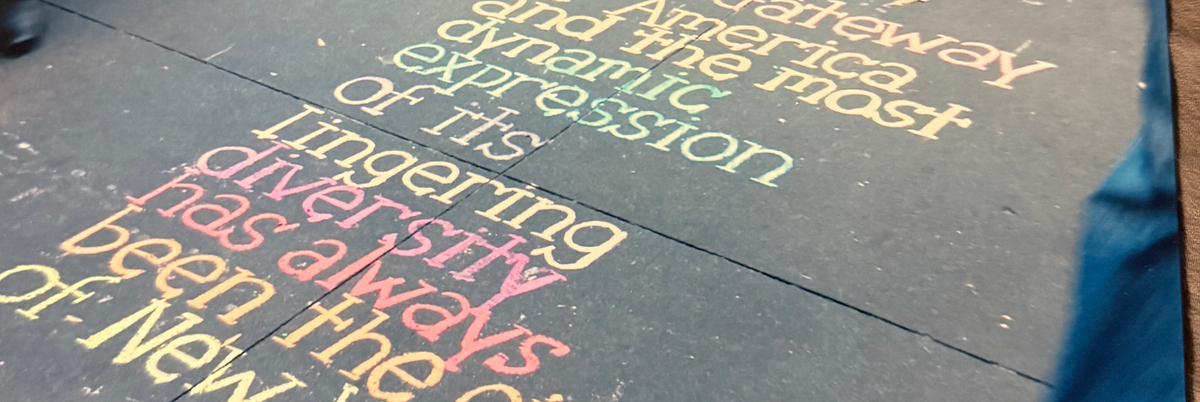 gateway
America
and the most
dynamic
expression
of its
lingering
diversity
has always
been the
of New